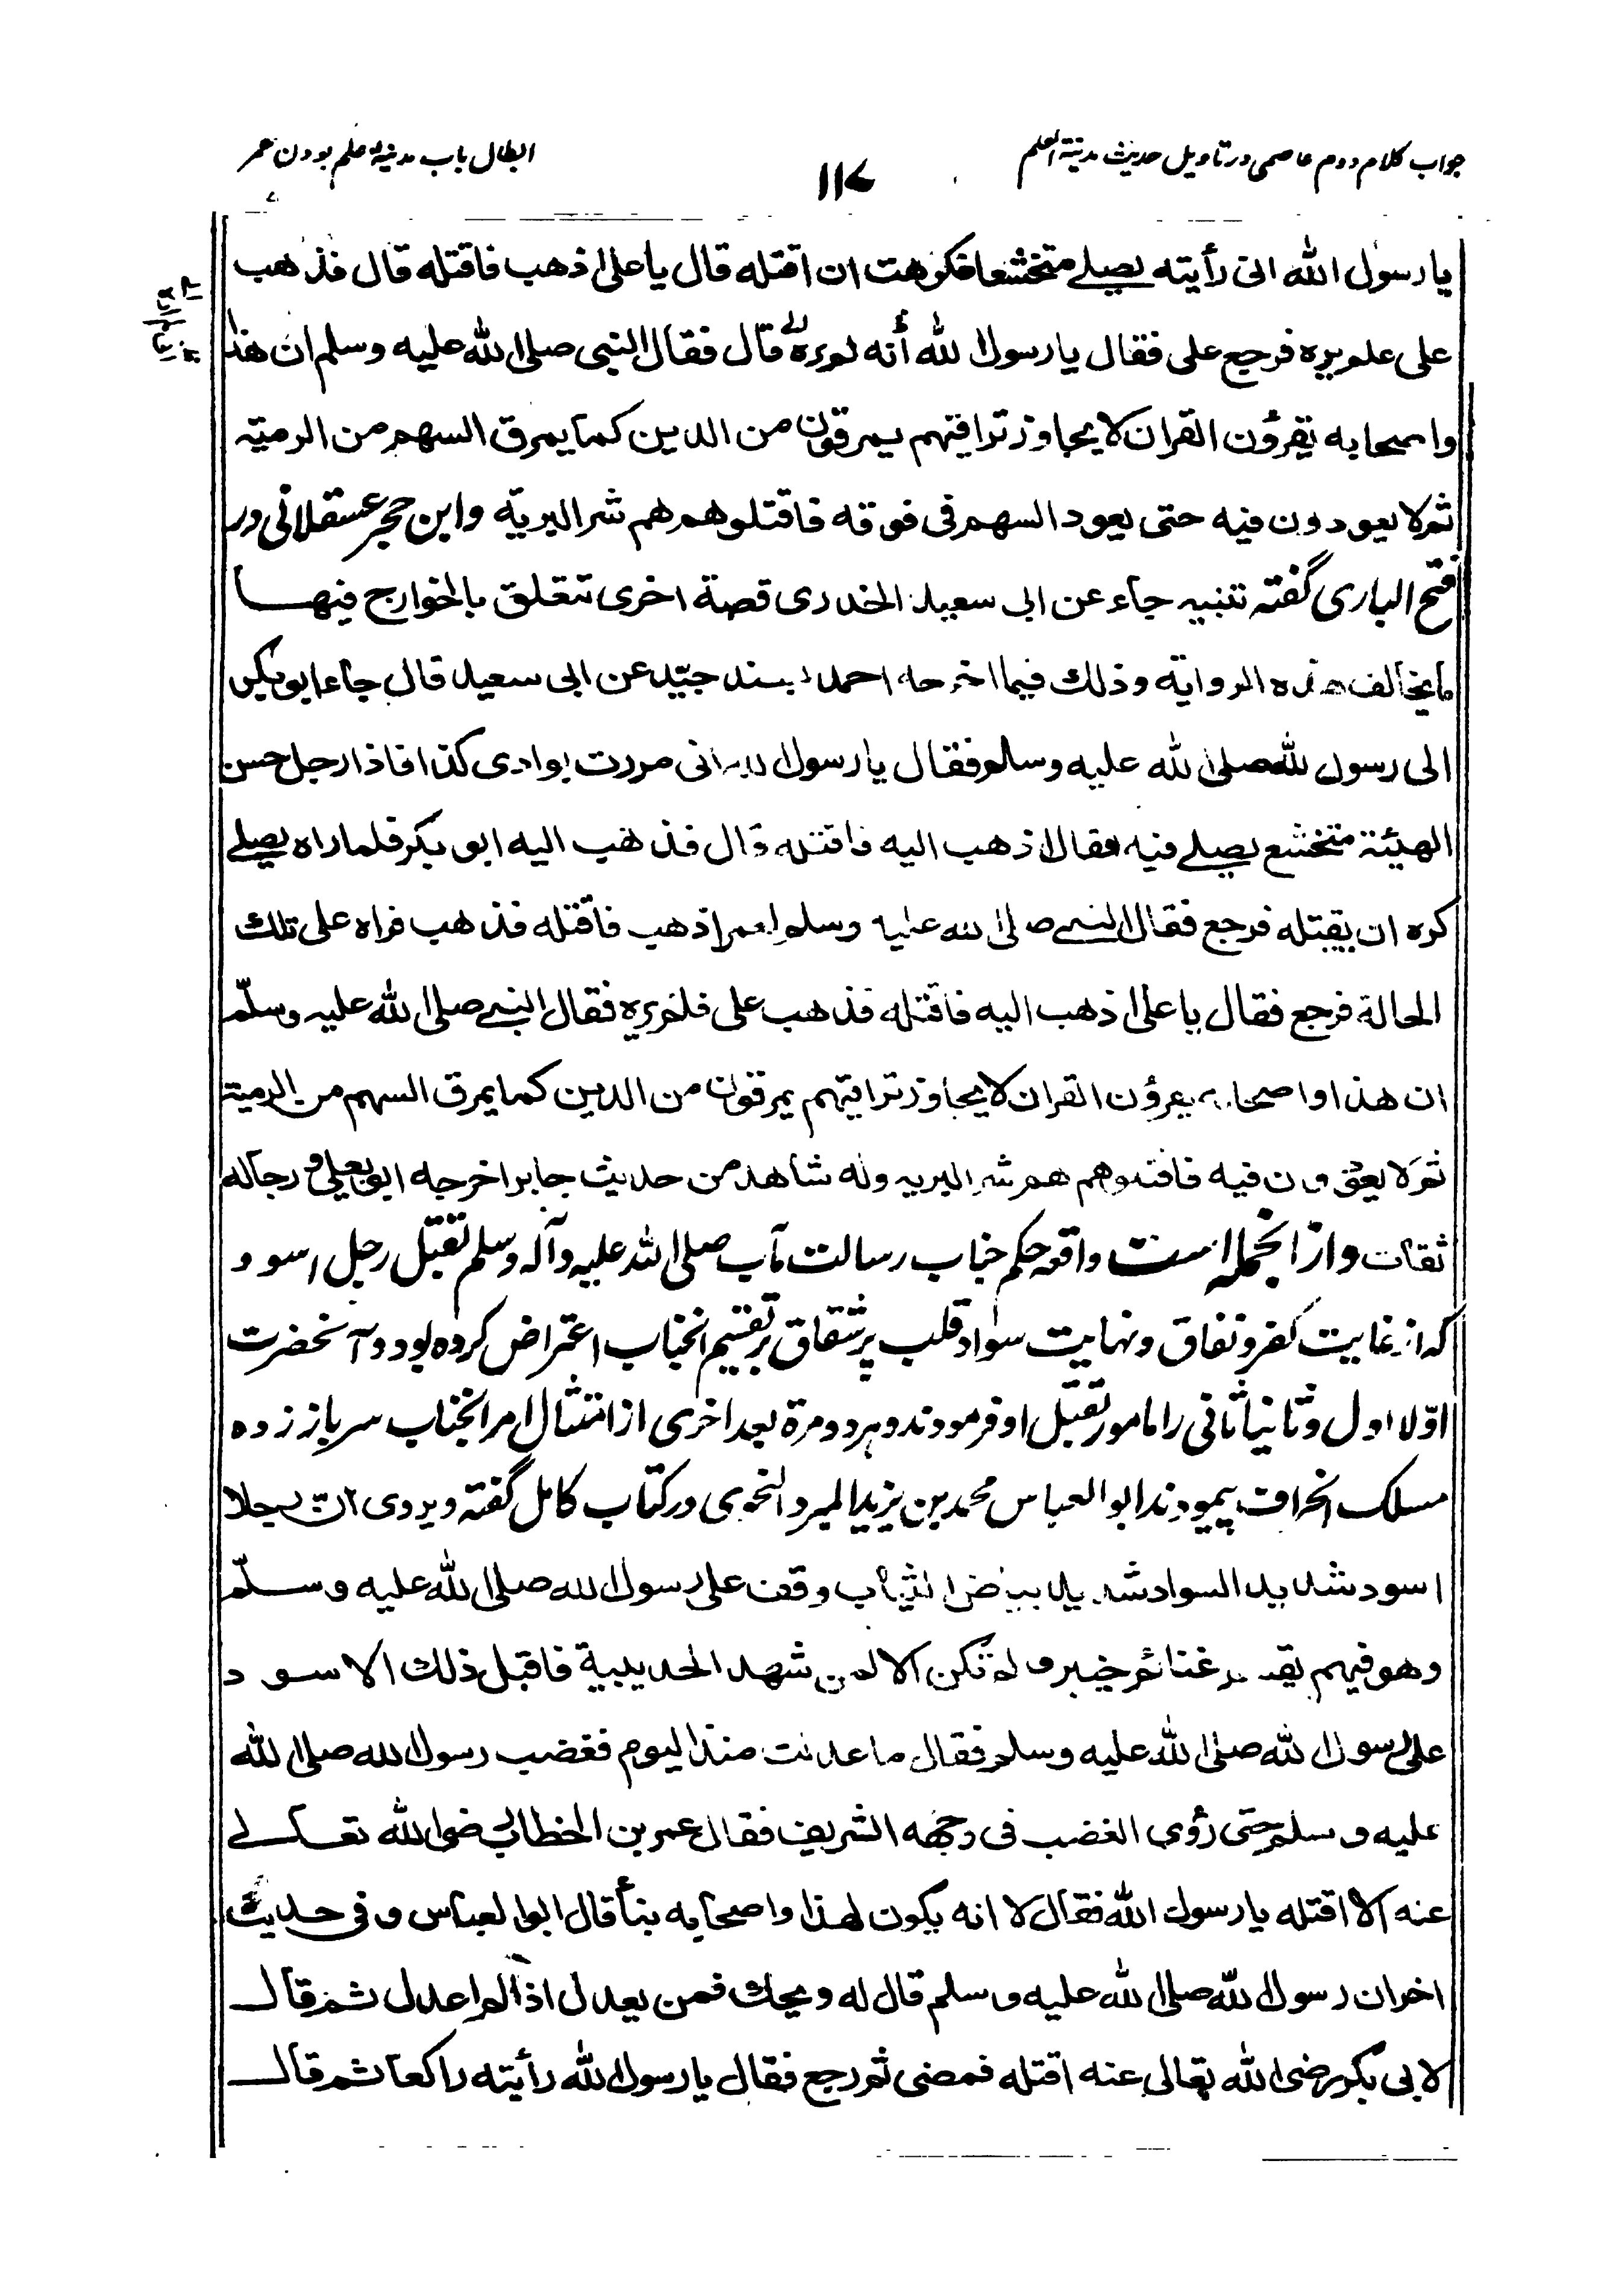 جواب کلام دوم عاصمی در تاویل حدیث مدینة العلم
۱۱۷
ابطال باب مدینهٔ علم بودن عمر
یا رسول الله انی رأیته یصلے متخشعا فکرهت ان اقتله قال یا علی اذهب فاقتله قال فذهب
علی علم یره فرجع علی فقال یا رسول الله أنه لم یره قال فقال النبی صلی الله علیه وسلم ان هذا
واصحابه یقرؤن القران لا یجاوز تراقیهم یمرقون من الدین کما یمرق السهم من الرمیّه
ثم لا یعودون فیه حتی یعود السهم فی فوقه فاقتلوهم هم شر البریّه وابن حجر عسقلانی در
فتح الباری گفته تنبیه جاء عن ابی سعید الخدری قصة اخری تتعلق بالخوارج فیها
ما یخالف هذه الروایة وذلك فیما اخرجه احمد بسند جیّد عن ابی سعید قال جاء ابو بکر
الی رسول الله صلی الله علیه وسلم فقال یا رسول الله انی مررت بوادی کذا فاذا رجل حسن
الهیئة متخشع یصلے فیه فقال اذهب الیه فاقتله قال فذهب الیه ابو بکر فلما راه یصلے
کره ان یقتله فرجع فقال النبے صلی الله علیه وسلم لعمر اذهب فاقتله فذهب فراه علی تلك
الحالة فرجع فقال یا علی اذهب الیه فاقتله فذهب علی فلم یره فقال النبے صلی الله علیه وسلّم
ان هذا واصحابه یقرؤن القران لا یجاوز تراقیهم یمرقون من الدین کما یمرق السهم من الرمیة
ثم لا یعودون فیه فاقتلوهم هم شر البریه وله شاهد من حدیث جابر اخرجه ابو یعلی و رجاله
ثقات وازانجمله است واقعه حکم جناب رسالت مآب صلی الله علیه وآله وسلم بقتل رجل اسود
که از غایت کفر و نفاق و نهایت سواد قلب پر شقاق بر تقسیم انجناب اعتراض کرده بود و آنحضرت
اوّلا اول و ثانیا ثانی را مامور بقتل او فرمودند و هر دو مرة بعد اخری از امتثال امر انجناب سر باز زده
مسلك انحراف پیمودند ابو العباس محمد بن یزید المبرد النحوی در کتاب کامل گفته ویروی ان رجلا
اسود شدید السواد شدید بیاض الثیاب وقف علی رسول الله صلی الله علیه وسلّم
وهو فیهم یقسم غنائم خیبر ولم تکن الا لمن شهد الحدیبیة فاقبل ذلك الاسود
علی رسول الله صلی الله علیه وسلم فقال ما عدلت منذ الیوم فغضب رسول الله صلی الله
علیه وسلم حتی رؤی الغضب فی وجهه الشریف فقال عمر بن الخطاب رضی الله تعالے
عنه الا اقتله یا رسول الله فقال لا انه یکون لهذا واصحابه نبأ قال ابو العباس وفی حدیث
اخر ان رسول الله صلی الله علیه وسلم قال له ویحك فمن یعدل اذا لم اعدل ثم قال
لابی بکر رضی الله تعالی عنه اقتله فمضی ثم رجع فقال یا رسول الله رأیته راکعا ثم قال